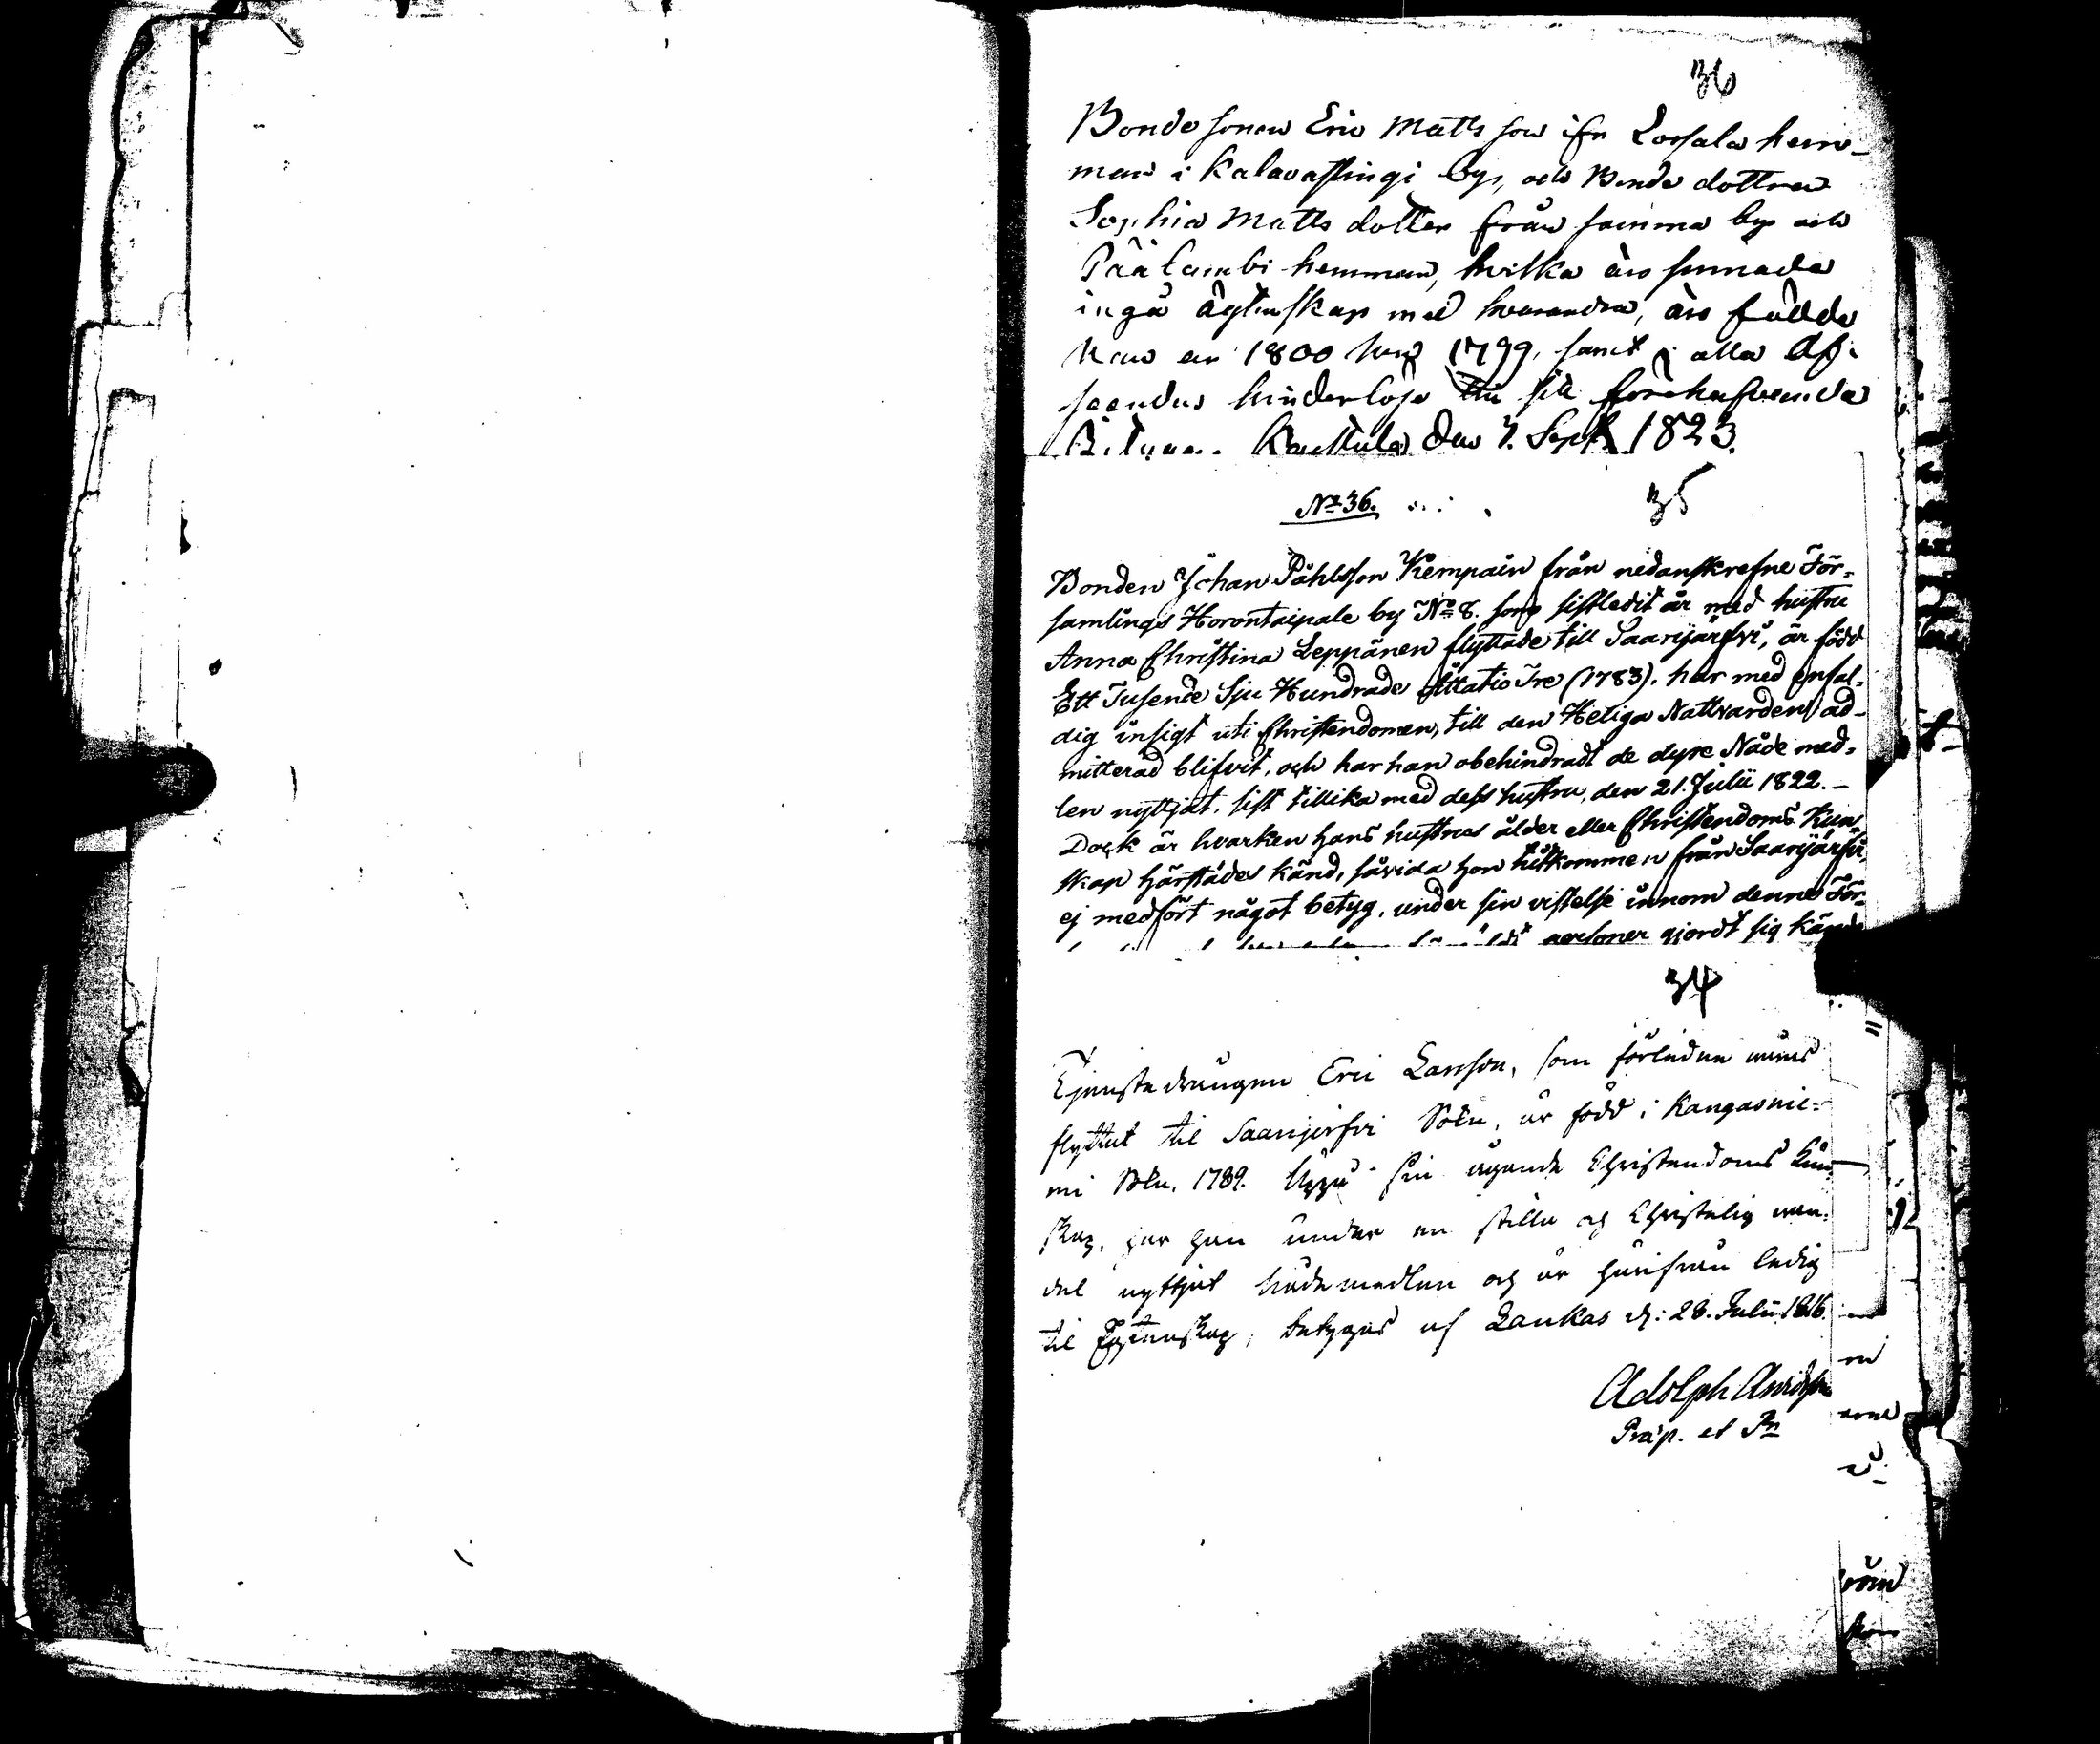 36
Bonde sonen Eric Matts son ifr Lossala hem-
man i Kalavastingi by, och Bonde dottren
Sophia Matts dotter från samma by och
Päälambi hemman, hvilka äro sinnade
ingå ägtenskap med hvarandra, äro födde
Han år 1800 hon 1799, samt i alla af-
seenden hinderlöse till sitt förehafvande
Karttula den 7. Sept. 1823.
No 36.
35
Bonden Johan Påhlsson Kempain från nedanskrefne För-
samlings Horontaipale by No 8. som sistledit år med hustru
Anna Christina Leppänen flyttade till Saarijärfvi, är född
Ett Tusende Sju Hundrade Åttatio Tre (1783). har med enfal-
dig insigt uti Christendomen, till den Heliga Nattvarden ad-
mitterad blifvit, och har han obehindradt de dyre Nåde med-
len nyttjat, sist tillika med dess hustru, den 21. Julii 1822.-
Dock är hvarken hans hustrus ålder eller Christendoms Kun-
skap härstädes känd, såvida hon hitkommen från Saarijärfvi,
ej medfört något betyg, under sin vistelse innom denne För-
personer gjordt sig känd
34
Tjenstedrängen Eric Larsson, som förleden
flyttat til Saarijerfvi Sokn, är född i Kangasnie-
mi Sokn, 1789. sin ägande Christendoms kun-
skap, har han under en stilla och Christelig van-
del nyttjat Nådemedlen och är härifrån ledig
til Egtenskap, betygas af Laukas d: 28. Julii 1816.
Adolph
Præp. et